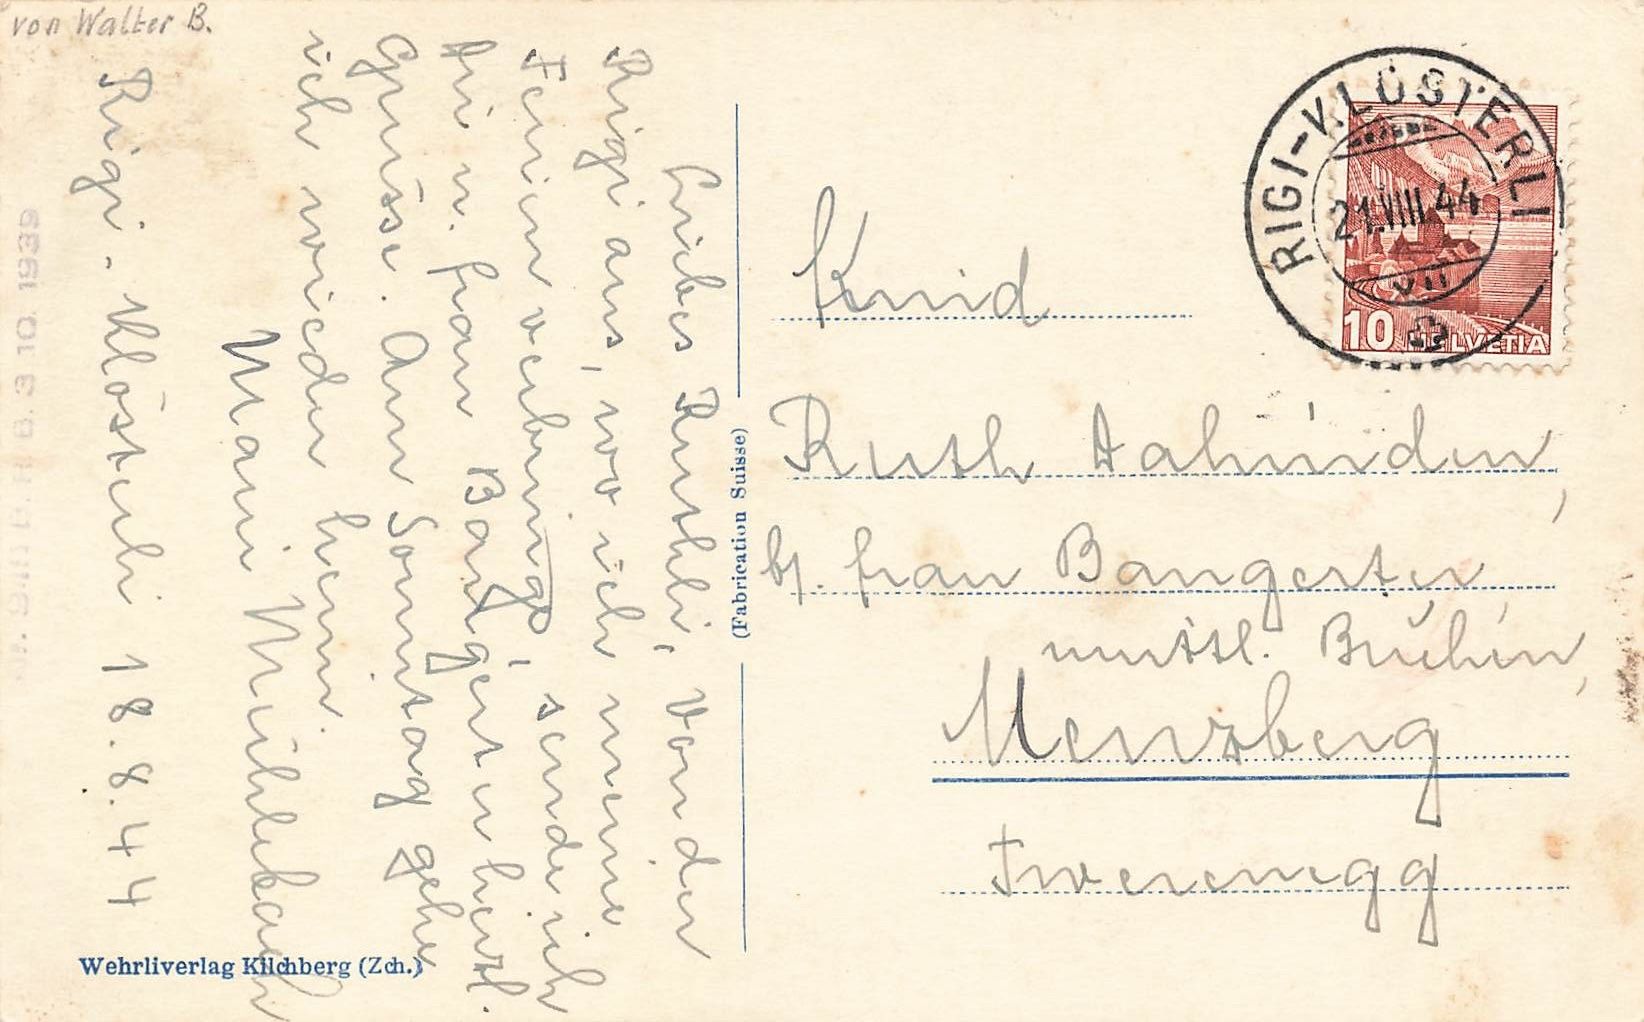 von Walter B.
Rigi-Klösterli 18.8.44
Liebes Ruthli, Von der
Rigi aus, wo ich meine
Ferien verbringe, sende ich
dir u. frau Bangerter herzl.
Grüsse. Am Sonntag gehe
ich wieder heim.
Marie Mühlebach
Wehrliverlag Kilchberg (Zch.)
(Fabrication Suisse)
RIGI-KLÖSTERLI
21.VIII.44
VII
10 HELVETIA
Kind
Ruth Dahinden,
bj. frau Bangerter
Menzberg
Twerenegg
6. 3. 10. 1939